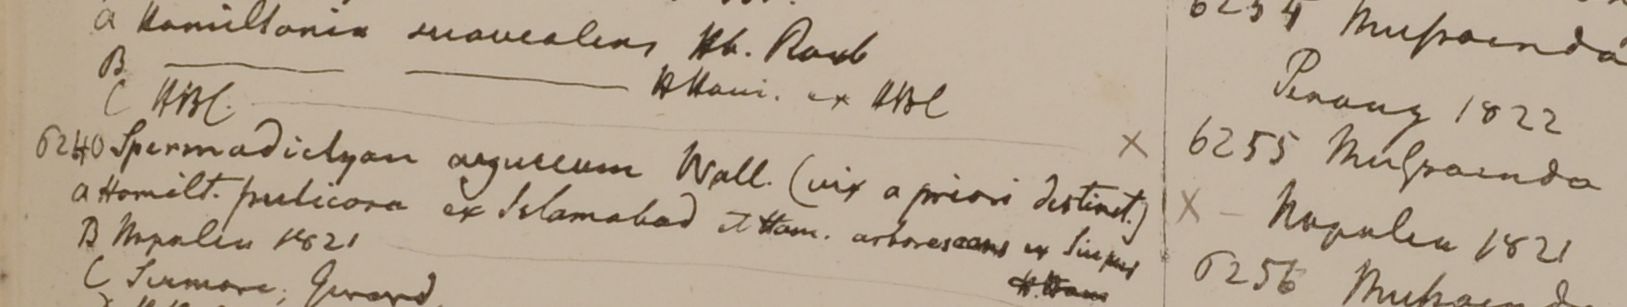 a Hamiltonia suaveolens Hb. Roxb
B H Ham. ex HBC
C HBC.
6240 Spermadictyon azureum Wall. (vix a priori distinct.)
a Hamilt. fruticosa ex Islamabad et Ham. arborescens ex
H Ham
B Napalia 1821
C Sirmore, Gerard
6254 Mussaenda
Penang 1822
X 6255 Mussaenda
X - Napalia 1821
6256 Mussaenda